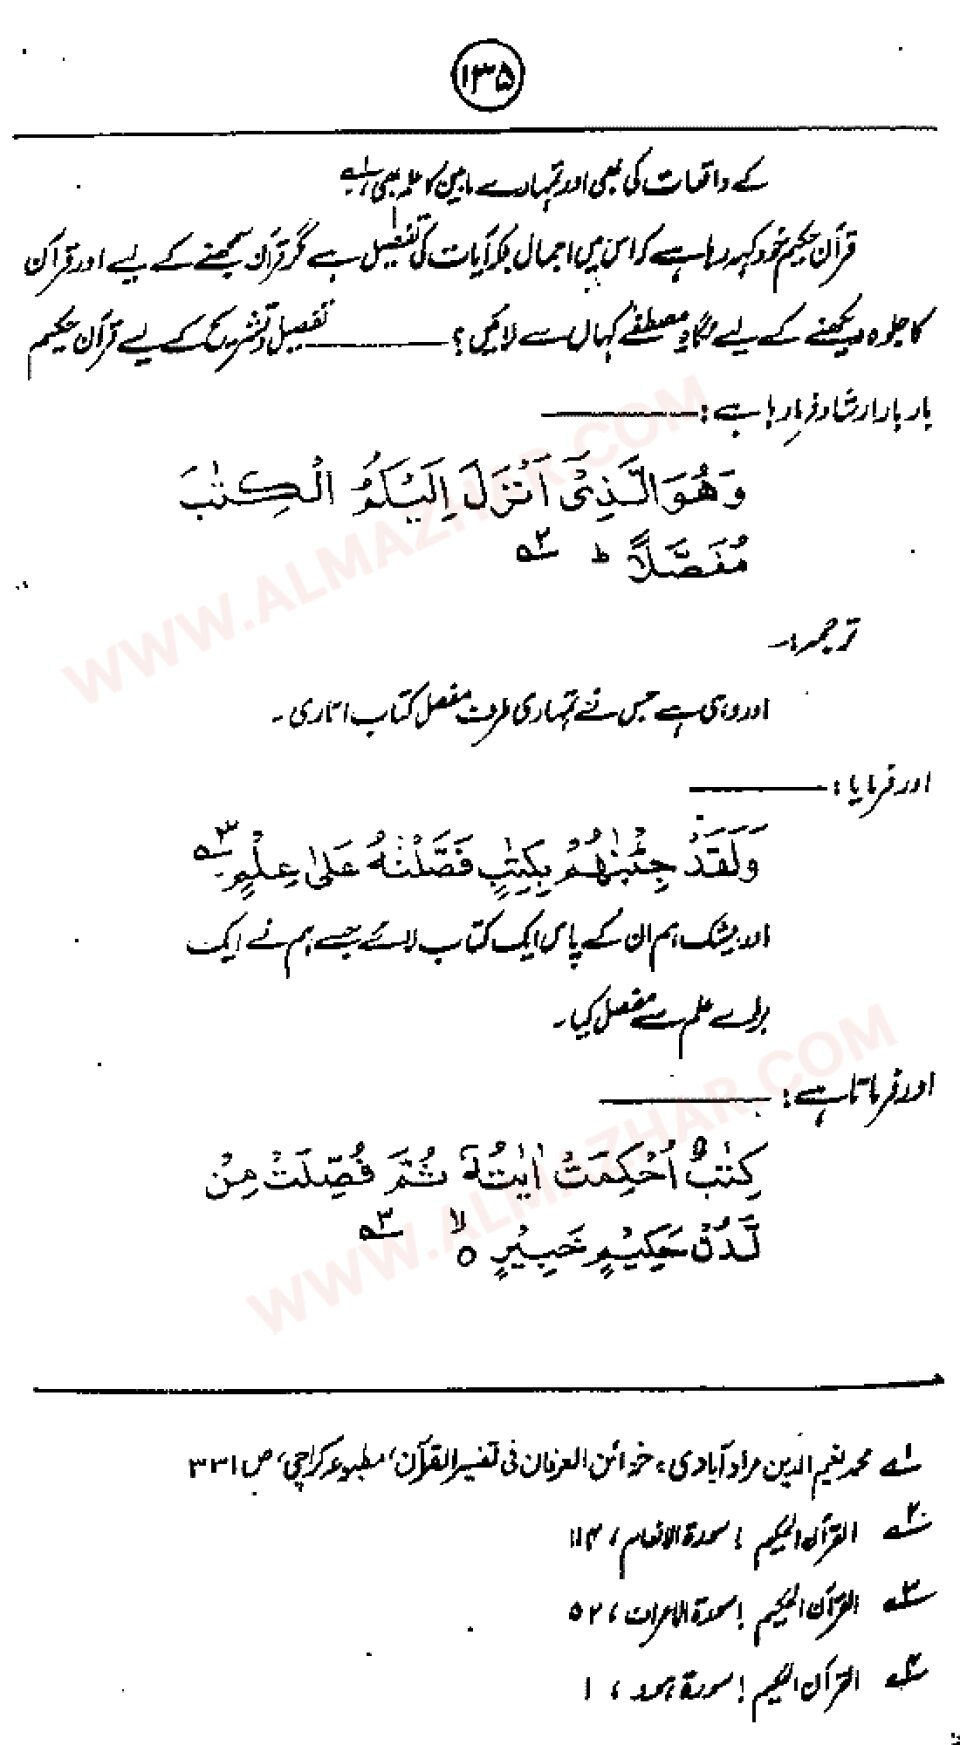 ۱۳۵
کے واقعات کی بھی اور تمہارے مابین کا علم بھی ۱ے
قرآن حکیم خود کہہ رہا ہے کہ اس میں اجمال بلکہ آیات کی تفصیل ہے مگر قرآن سمجھنے کے لیے اور قرآن
کا جلوہ دیکھنے کے لیے نگاہِ مصطفےٰ کہاں سے لائیں؟ ــــــــ تفصیل و تشریح کے لیے قرآن حکیم
بار بار ارشاد فرما رہا ہے: ــــــــ
وَهُوَ الَّذِیْٓ اَنْزَلَ اِلَیْکُمُ الْکِتٰبَ
مُفَصَّلًا ؕ ۲ے
ترجمہ:۔
اور وہی ہے جس نے تمہاری طرف مفصل کتاب اتاری۔
اور فرمایا: ــــــــ
وَلَقَدْ جِئْنٰهُمْ بِکِتٰبٍ فَصَّلْنٰهُ عَلٰی عِلْمٍ ۳ے
اور بیشک ہم ان کے پاس ایک کتاب لائے جسے ہم نے ایک
بڑے علم سے مفصل کیا۔
اور فرماتا ہے: ــــــــ
کِتٰبٌ اُحْکِمَتْ اٰیٰتُهٗ ثُمَّ فُصِّلَتْ مِنْ
لَّدُنْ حَکِیْمٍ خَبِیْرٍ ۙ۝ ۳ے
۱ے محمد نعیم الدین مراد آبادی، خزائن العرفان فی تفسیر القرآن، مطبوعہ کراچی، ص ۳۳۱
۲ے القرآن الحکیم: سورۃ الانعام، ۱۱۴
۳ے القرآن الحکیم: سورۃ الاعراف، ۵۲
۴ے القرآن الحکیم: سورۃ ہود، ۱
WWW.ALMAZHAR.COM
WWW.ALMAZHAR.COM